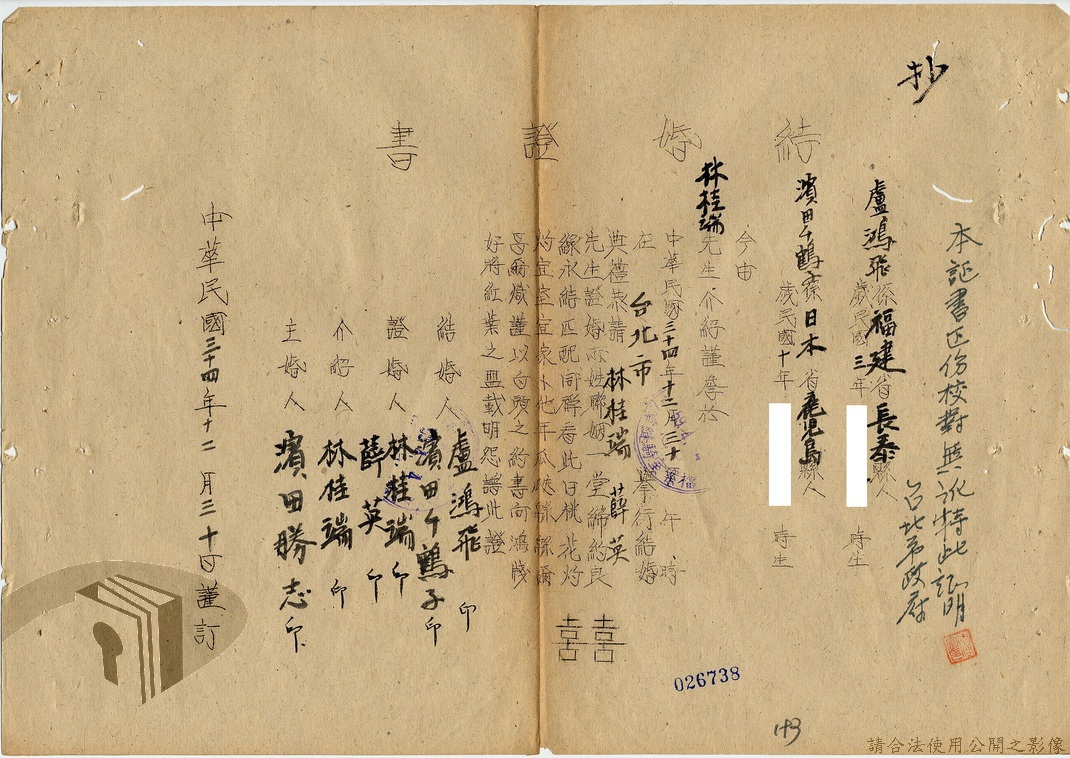 抄
本証書正份校對無訛特此証明
台北市政府
結婚證書
盧鴻飛係福建省長泰縣人
歲民國三年
時生
濱田千鶴子係日本省鹿児島縣人
歲民國十年
時生
今由
林桂端先生介紹謹詹於
中華民國三十四年十二月三十日午時
在台北市舉行結婚
典禮恭請林桂端薛英
先生證婚兩姓聯姻一堂締約良
緣永結匹配同稱看此日桃花灼
灼宜室宜家卜他年瓜瓞緜緜爾
昌爾熾謹以白頭之約書向鴻牋
好將紅葉之盟載明鴛譜此證
囍
結婚人 盧鴻飛 印
濱田千鶴子 印
證婚人 林桂端 印
薛英 印
介紹人 林桂端 印
主婚人 濱田勝志 印
中華民國三十四年十二月三十日謹訂
026738
143
請合法使用公開之影像